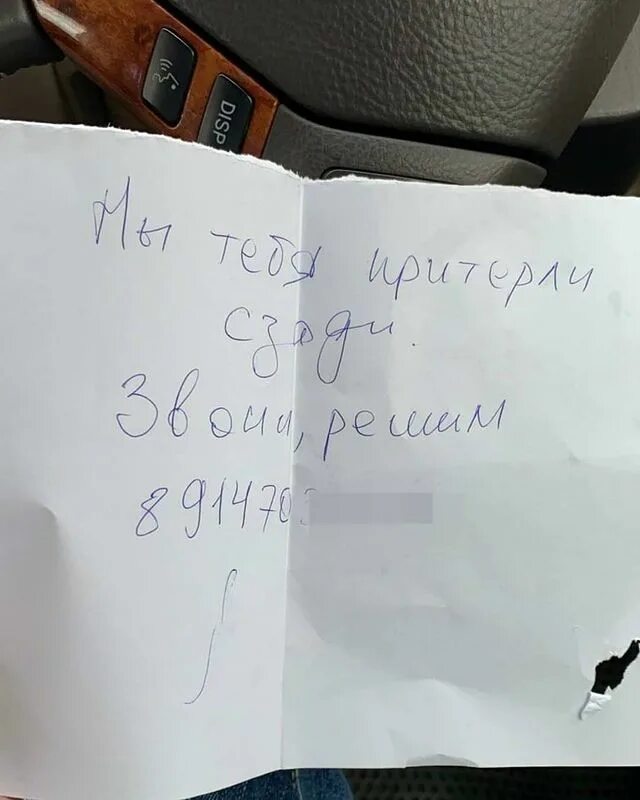 DISP
Мы тебя притерли
сзади.
Звони, решим
8914703